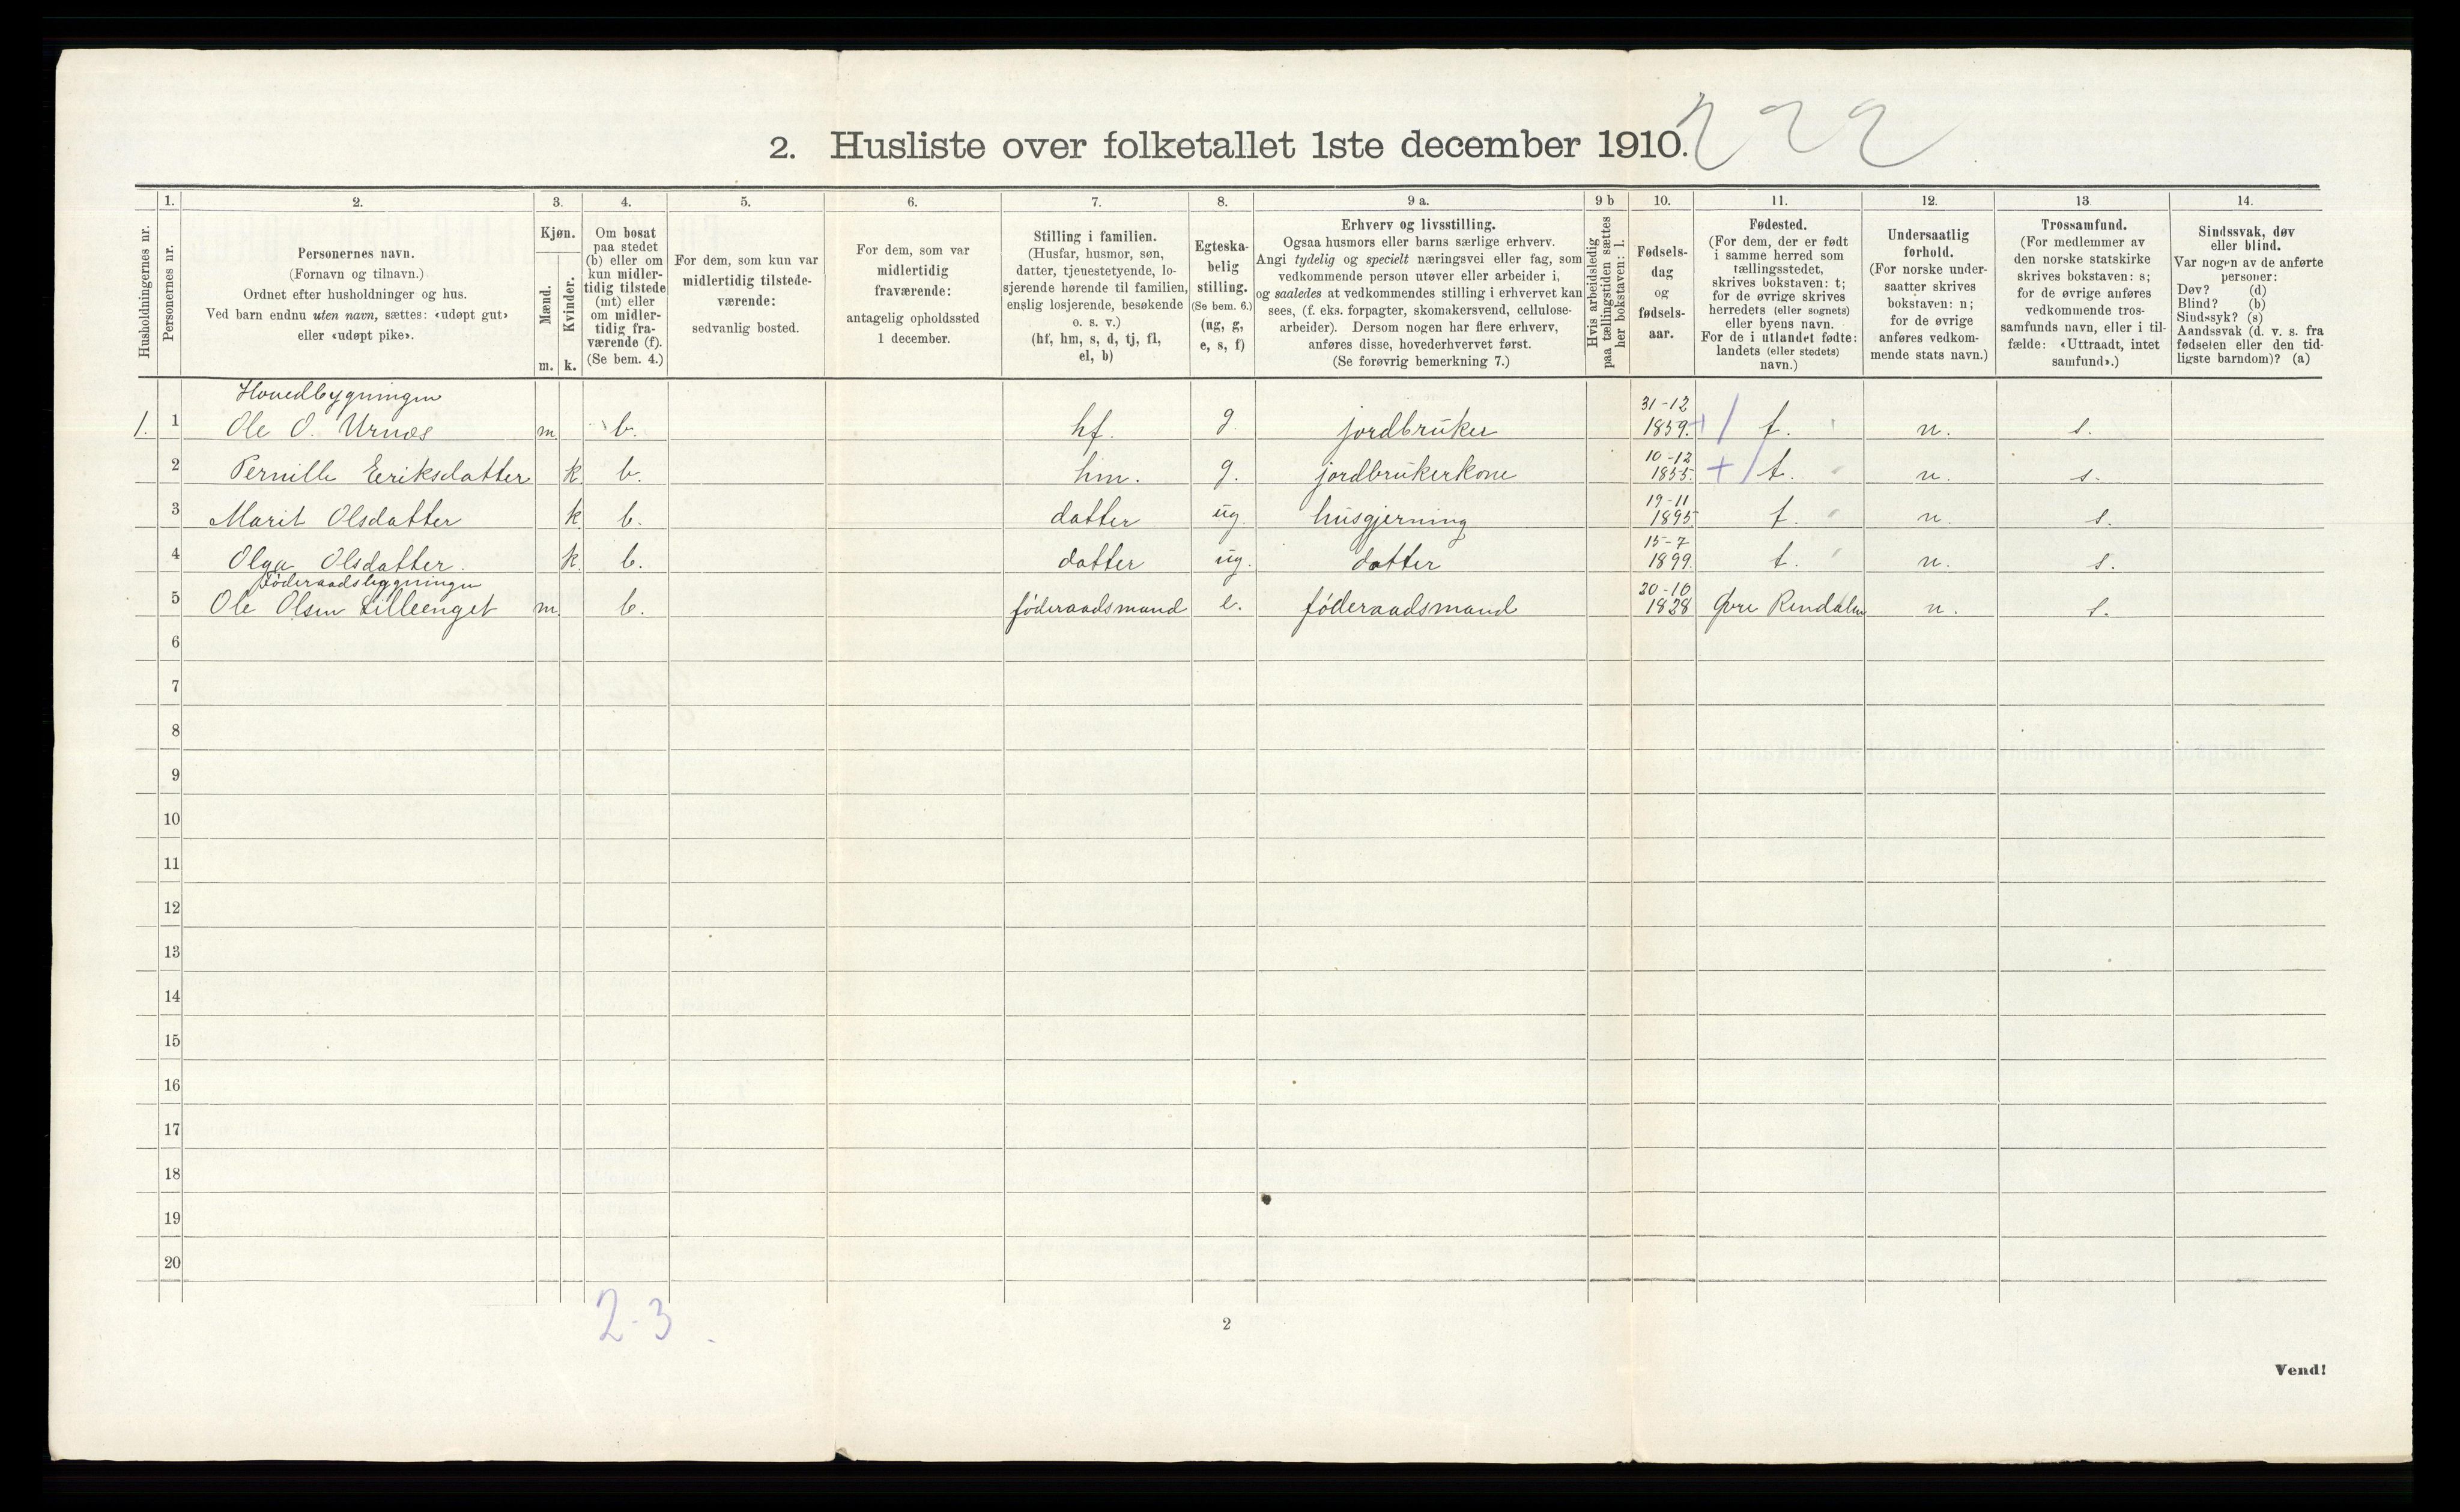 2. Husliste over folketallet 1ste december 1910. 222
1. 2. 3. 4. 5. 6. 7. 8. 9 a. 9 b 10. 11. 12. 13 14.
Husholdningernes nr.
Personernes nr.
Personernes navn.
(Fornavn og tilnavn.)
Ordnet efter husholdninger og hus.
Ved barn endnu uten navn, sættes: «udøpt gut»
eller «udøpt pike».
Kjøn.
Mænd.
m.
Kvinder.
k.
Om bosat
paa stedet
(b) eller om
kun midler-
tidig tilstede
(mt) eller
om midler-
tidig fra-
værende (f).
(Se bem. 4.)
For dem, som kun var
midlertidig tilstede-
værende:
sedvanlig bosted.
For dem, som var
midlertidig
fraværende:
antagelig opholdssted
1 december.
Stilling i familien.
(Husfar, husmor, søn,
datter, tjenestetyende, lo-
sjerende hørende til familien,
enslig losjerende, besøkende
o. s. v.)
(hf, hm, s, d, tj, fl,
el, b)
Egteska-
belig
stilling.
(Se bem. 6.)
(ug, g,
e, s, f)
Erhverv og livsstilling.
Ogsaa husmors eller barns særlige erhverv.
Angi tydelig og specielt næringsvei eller fag, som
vedkommende person utøver eller arbeider i,
og saaledes at vedkommendes stilling i erhvervet kan
sees, (f. eks. forpagter, skomakersvend, cellulose-
arbeider). Dersom nogen har flere erhverv,
anføres disse, hovederhvervet først.
(Se forøvrig bemerkning 7.)
Hvis arbeidsledig
paa tællingstiden sættes
her bokstaven: l.
Fødsels-
dag
og
fødsels-
aar.
Fødested.
(For dem, der er født
i samme herred som
tællingsstedet,
skrives bokstaven: t;
for de øvrige skrives
herredets (eller sognets)
eller byens navn.
For de i utlandet fødte:
landets (eller stedets)
navn.)
Undersaatlig
forhold.
(For norske under-
saatter skrives
bokstaven: n;
for de øvrige
anføres vedkom-
mende stats navn.)
Trossamfund.
(For medlemmer av
den norske statskirke
skrives bokstaven: s;
for de øvrige anføres
vedkommende tros-
samfunds navn, eller i til-
fælde: «Uttraadt, intet
samfund».)
Sindssvak, døv
eller blind.
Var nogen av de anførte
personer:
Døv? (d)
Blind? (b)
Sindssyk? (s)
Aandssvak (d. v. s. fra
fødselen eller den tid-
ligste barndom)? (a)
Hovedbygningen
1. 1 Ole O. Urnæs m. b. hf. g. jordbruker 31-12 1859. + / t. n. s.
2 Pernille Eeriksdatter k. b. hm. g. jordbrukerkone 10-12 1855. + / t. n. s.
3 Marit Olsdatter k b. datter ug. husgjerning 19-11 1895. t. n. s.
4 Olga Olsdatter. k. b. datter ug. datter 15-7 1899. t. n. s.
Föderaadsbygningen
5 Ole Olsen Lilleenget m. b. föderaadsmand e. föderaadsmand 20-10 1828 Øvre Rendalen n. s.
6
7
8
9
10
11
12
13
14
15
16
17
18
19
20
2-3
2
Vend!